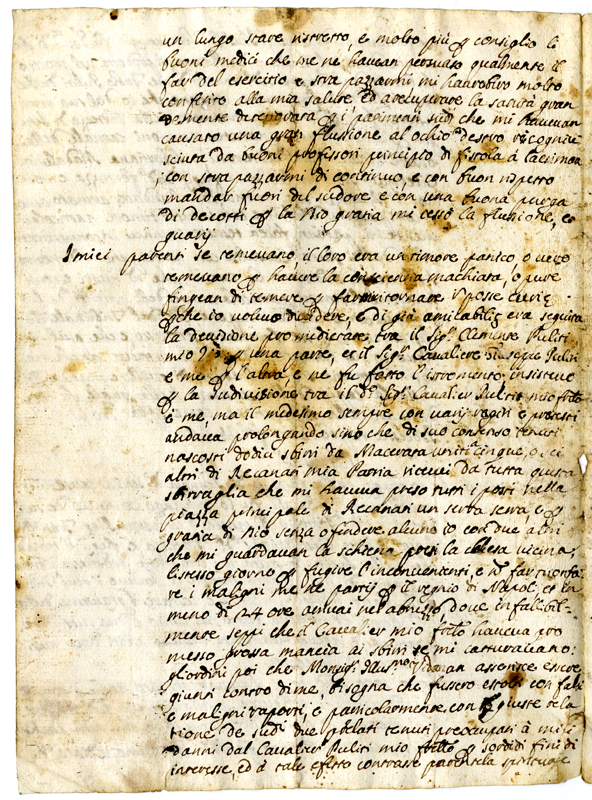 un lungo stare ristretto, e molto più p consiglio di
buoni medici che me ne havean persuaso qualmente il
far del esercitio e strapazzarmi mi haurebbe molto
conferito alla mia salute, ed a recuperare la sanità gran
demente deteriorata p i patimenti sudi che mi haveuan
causato una gran flussione al ochio destro recognos
sciuta da buoni professori principio di fistola à lacrimale
; con strapazzarmi di continuo e con buon rispetto
mandar fuori del sudore e con una buona purga
di decotti p la Dio gratia mi cessò la flussione, e
guarij
I miei parenti se temevano, il loro era un timore panico o vero
temevano p havere la conscienza machiata, o pure
fingean di temere p farmi ritornare in posse
che io volevo dividere, e di già amicabilr era seguita
la devisione pro medietate tra il Sigr Clemente Puliti
mio p una parte, et il Sigr Cavaliere Giuseppe Puliti
e me p l'altra, e ne fu fatto l'istromento, insisteve
p la sudivisione tra il do Sigr Cavalier Puliti mio frlło
e me, ma il medesimo sempre con varij ragiri e pretesti
andava prolongando sino che di suo consenso tenuti
nascosti dodici sbirri da Macerata uniti cinque, o sei
altri di Recanati mia Patria vicevei da tutta questa
sbirraglia che mi haveva preso tutti i posti nella
piazza principale di Recanati un serra serra, e p
gratia di Dio senza ofendere alcuno io con due altri
che mi guardavan la schiena presi la chiesa vicina,
l'istesso giorno p fugire l'inconvenienti, e n far trionfa
re i maligni me ne partij p il regnio di Napoli et in
meno di 24 ore arrivai nel abruzzo, dove infalibil-
mente seppi che il Cavalier mio frłło haveva pro
messo grossa mancia ai sbirri se mi catturavano:
gl'ordini poi che Monsigr Illusmo Vidman asserisce essere
giunti contro di me, bisogna che fussero estorti con falsi
e maligni raporti, e particolarmente con giuste rela
tione de sudi due prelati tenuti preocupati à miei
danni dal Cavalier Puliti mio frłło p sordidi fini di
interesse, ed à tale efetto contrasse parentela spirituale